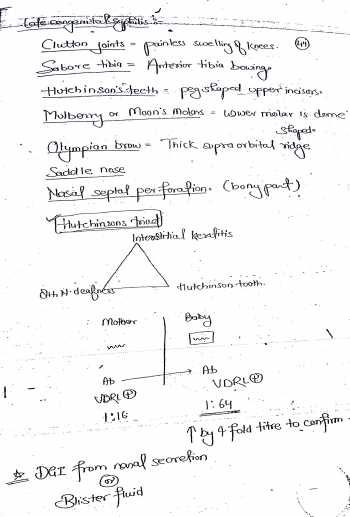 Late congenital syphilis :-
Clutton joints = painless swelling of knees. (44)
Sabore tibia = Anterior tibia bowing.
Hutchinson's teeth = peg shaped upper incisors.
Mulberry or Moon's molars = Lower molar is dome
shaped.
Olympian brow = Thick supra orbital ridge
Saddle nose
Nasal septal perforation. (bony part)
Hutchinsons triad
Interstitial keratitis
8th N. deafness
Hutchinson tooth.
Mother Baby
Ab → Ab
VDRL ⊕ VDRL ⊕
1:16 1:64
↑ by 4 fold titre to confirm
☆ DGI from nasal secretion
(or)
Blister fluid